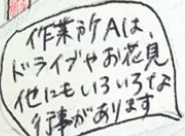 作業所Aは、
ドライブやお花見
他にもいろいろな
行事があります